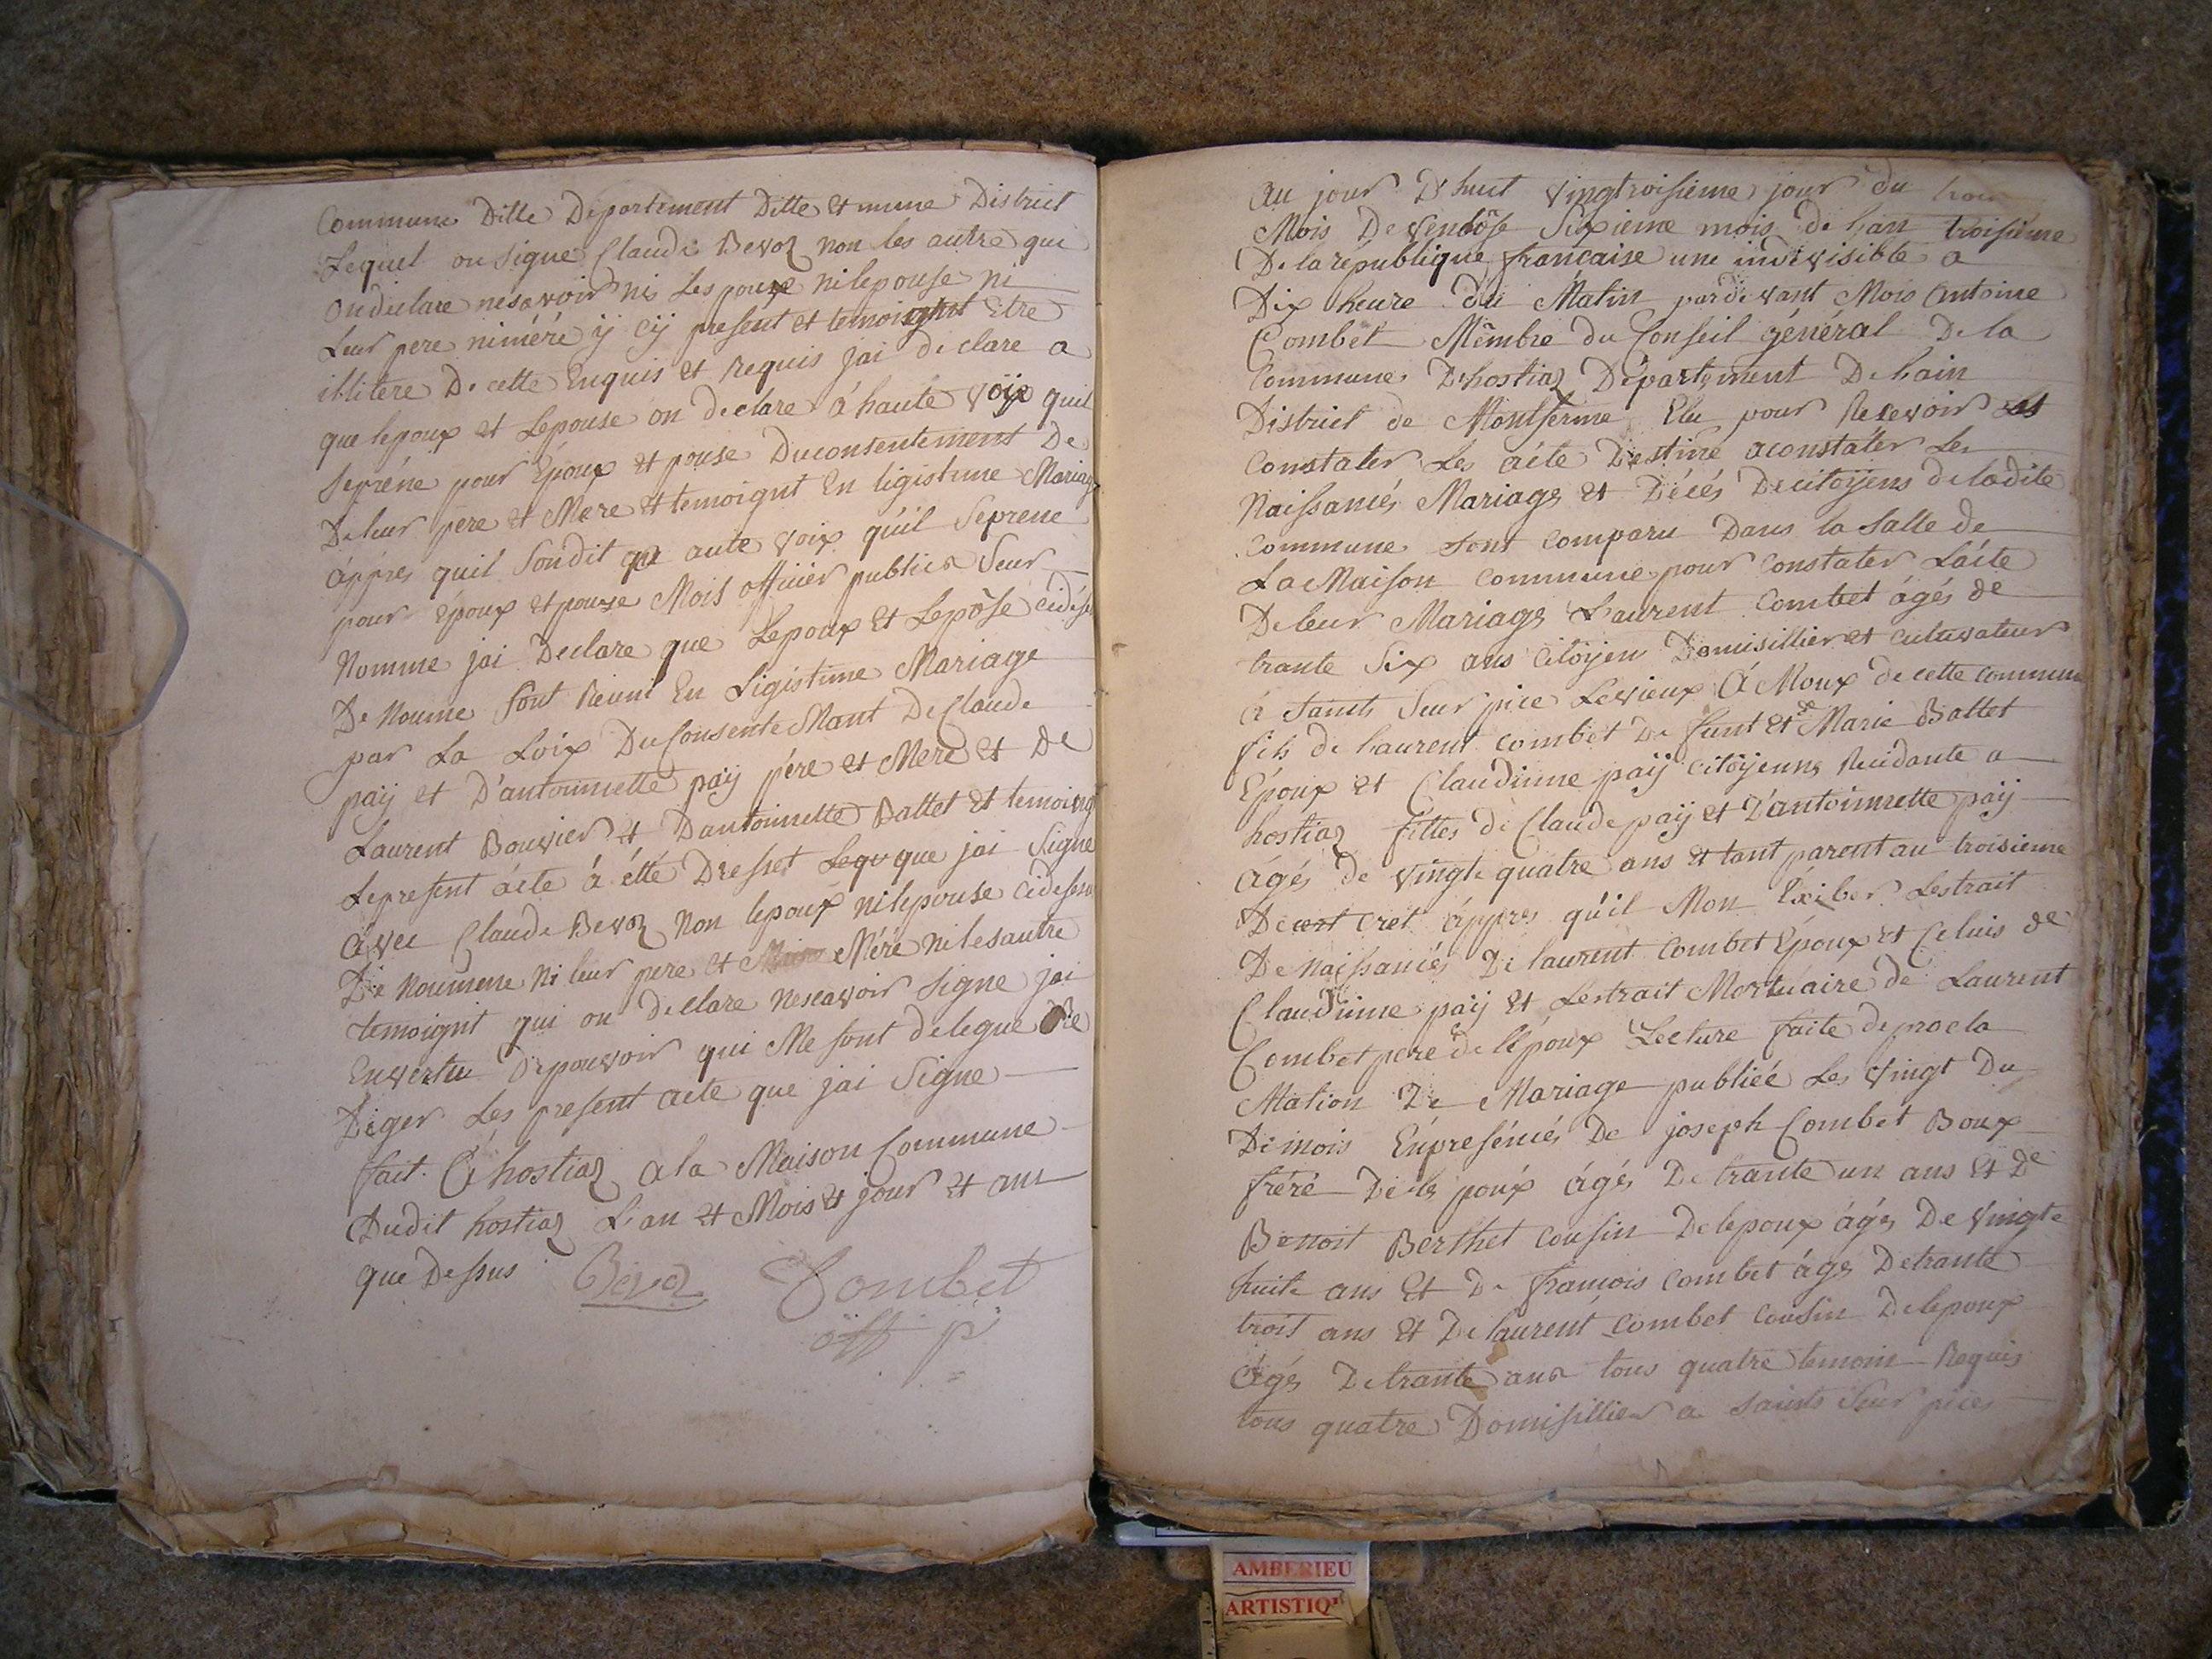 Commune Ditte Département Ditte et mune District
Lequel on Signe Claude Bevoz non les autre qui
On declare nesavoir ni Lespoux nilepouse ni
Leur pere niméré ÿ cÿ present et temoignt Etre
illitere De cette Enquis et Requis jai declare a
que lepoux et Lepouse on declare á haute voix quil
Seprène pour Époux et pouse Duconsentement De
Deleur pere et Mere et temoignt En ligistime Mariag
áppres quil Sondit aute voix qu'il Seprene
pour époux et pouse Mois offiiier publica Seur
Nomme jai Declare que Lepoux et Lepôse cidése
De Noume Sont Reuni En Ligistime Mariage
par La Loix Du ConsenteMant De Claude
paÿ et D'antoinnette paÿ pére et Mere et De
Laurent Bouvier et Dantoinnette Battet et temoing
Lepresent acte á été Dresset Lequque jai Signe
Avec Claude Bevoz Non lepoux nilepouse cidessu
De Noumene Ni leur pere et Mére nilesautre
temoignt qui on declare Nescavoir Signe jai
Envertu Depouvoir qui Me sont delegue Re
Diger Les present acte que jai Signe
fait Á hostiaz a la Maison Commune
Dudit hostiaz L'an et Mois et jour et ans
que Dessus Bevoz Combet
off p
Au jour D'huit vingtroisieme jour du
Mois De Ventôse Sixieme mois de Lan troisième
De la république française une indivisible a
Dix heure du Matin pardevant Mois Antoine
Combet Mêmbre du Conseil général De la
Commune D'hostiaz Département De Lain
District de Montferme Elu pour Recevoir et
Constater Les acte Destine aconstater Les
Naissancés Mariage et Décés Decitoÿens deladite
commune Sont comparu Dans la Salle de
La Maison Commune pour Constater Lácte
Deleur Mariage Laurent Combet ágés de
trante Six ans Citoÿen Domisillier et cultuvateur
á Saints Seur pice Levieux Á Moux de cette commune
fils de Laurent combet De funt et de Marie Battet
Époux et Claudinne paÿ Citoÿenne Recidante a
hostiaz filles de Claude paÿ et D'antoinnette paÿ
ágés de vingte quatre ans et tant parent au troisieme
De cret áppres qu'il Mon Exiber Lestrait
De naissancés De laurent Combet Époux et Celuis de
Claudinne paÿ et Lestrait Mortuaire dé Laurent
Combet pere de lépoux Lecture faite deprocla
Mation De Mariage publiéé Les vingt Du
De mois Enpreséncés De joseph Combet Boux
fréré De le poux ágés De trante un ans et De
Benoit Berthet Cousin Delepoux ágés De vingte
huite ans et De francois Combet áges Detrante
troit ans et De laurent Combet Cousin Delepoux
ágés Detrante ans tous quatre temoin Requis
tous quatre Domisillier a Saints Seur pice
AMBERIEU
ARTISTIQ